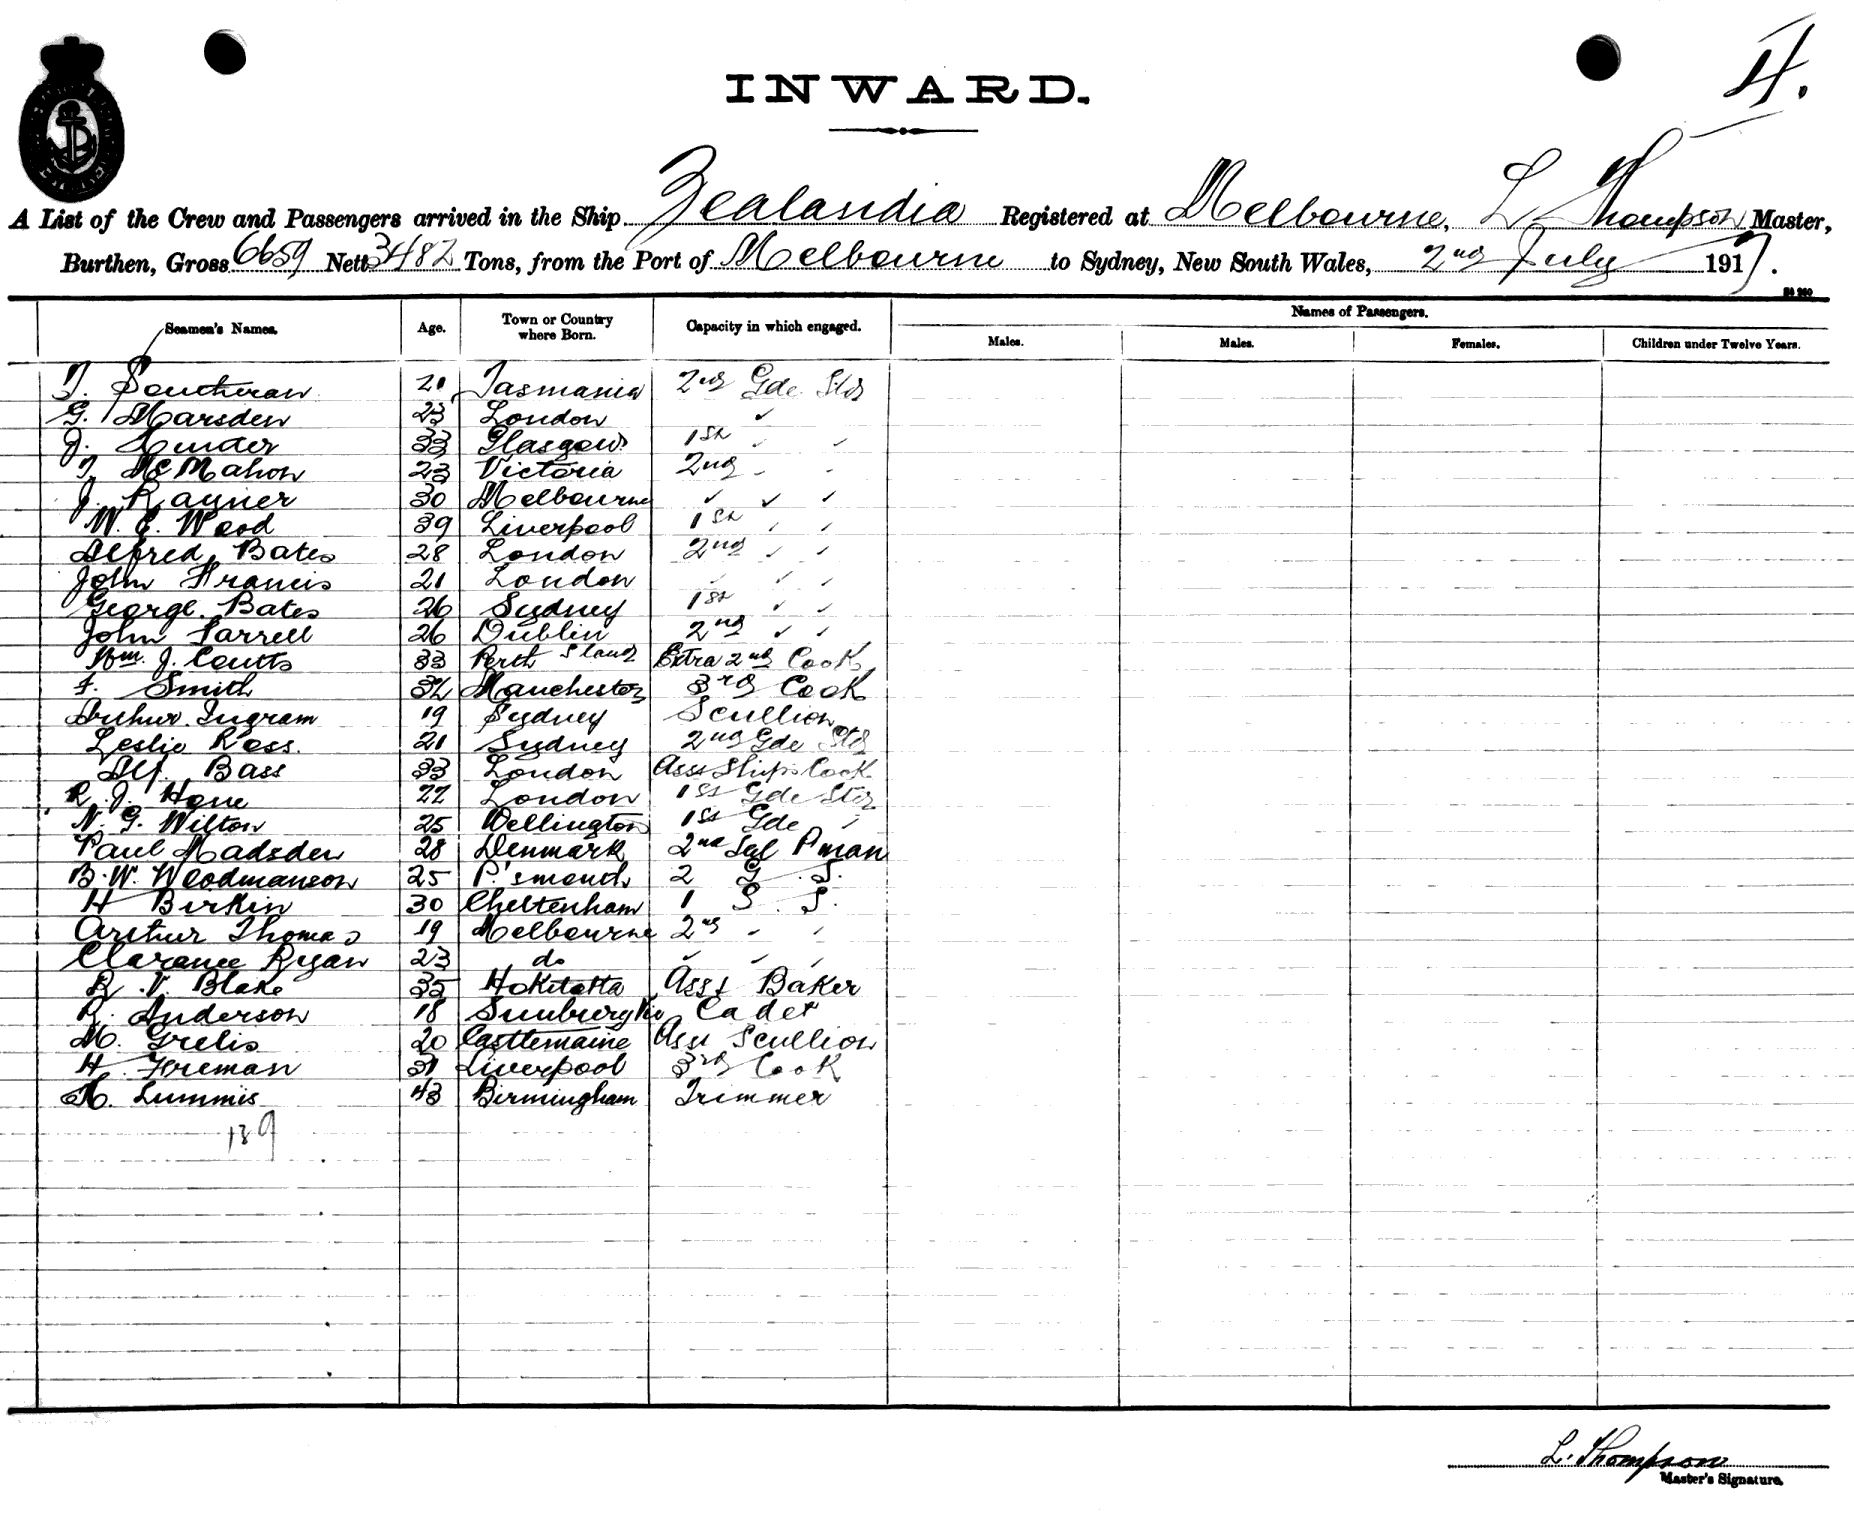 4.
INWARD.
A List of the Crew and Passengers arrived in the Ship Zealandia Registered at Melbourne, L Thompson Master,
Burthen, Gross 6659 Nett 3482 Tons, from the Port of Melbourne to Sydney, New South Wales, 2nd July 1917.
Names of Passengers.
Seamen's Names. Age. Town or Country where Born. Capacity in which engaged. Males. Males. Females. Children under Twelve Years.
T. Southeran 21 Tasmania 2nd Gde Std
G. Marsden 23 London ✓
J. Hunter 33 Glasgow 1st ✓ ✓
T. McMahon 23 Victoria 2nd
J. Rayner 30 Melbourne ✓ ✓ ✓
W. E. Wood 39 Liverpool 1st
Alfred Bates 28 London 2nd
John Francis 21 London ✓ ✓
George Bates 26 Sydney 1st ✓ ✓
John Farrell 26 Dublin 2nd ✓ ✓
Wm. J. Coutts 33 Perth Extra 2nd Cook
F. Smith 32 Manchester 3rd Cook
Arthur Ingram 19 Sydney Scullion
Leslie Ross 21 Sydney 2nd Gde Std
Alf. Bass 33 London Asst Ships Cook
R. J. Hone 22 London 1st Gde Std
N. G. Wilton 25 Wellington 1st Gde
Paul Madsden 28 Denmark 2nd Sal Pman
B. W. Woodmanson 25 P'smouth 2 G. S.
H Birkin 30 Cheltenham 1 S. S.
Arthur Thomas 19 Melbourne 2nd
Clarence Ryan 23 do ✓ ✓ ✓
R. V. Blake 35 Hokitatta Asst Baker
R. Anderson 18 Sunbury Vic Cadet
M. Grelis 20 Castlemaine Asst Scullion
H. Foreman 31 Liverpool 3rd Cook
H. Lummis 43 Birmingham Trimmer
139
L. Thompson
Master's Signature.